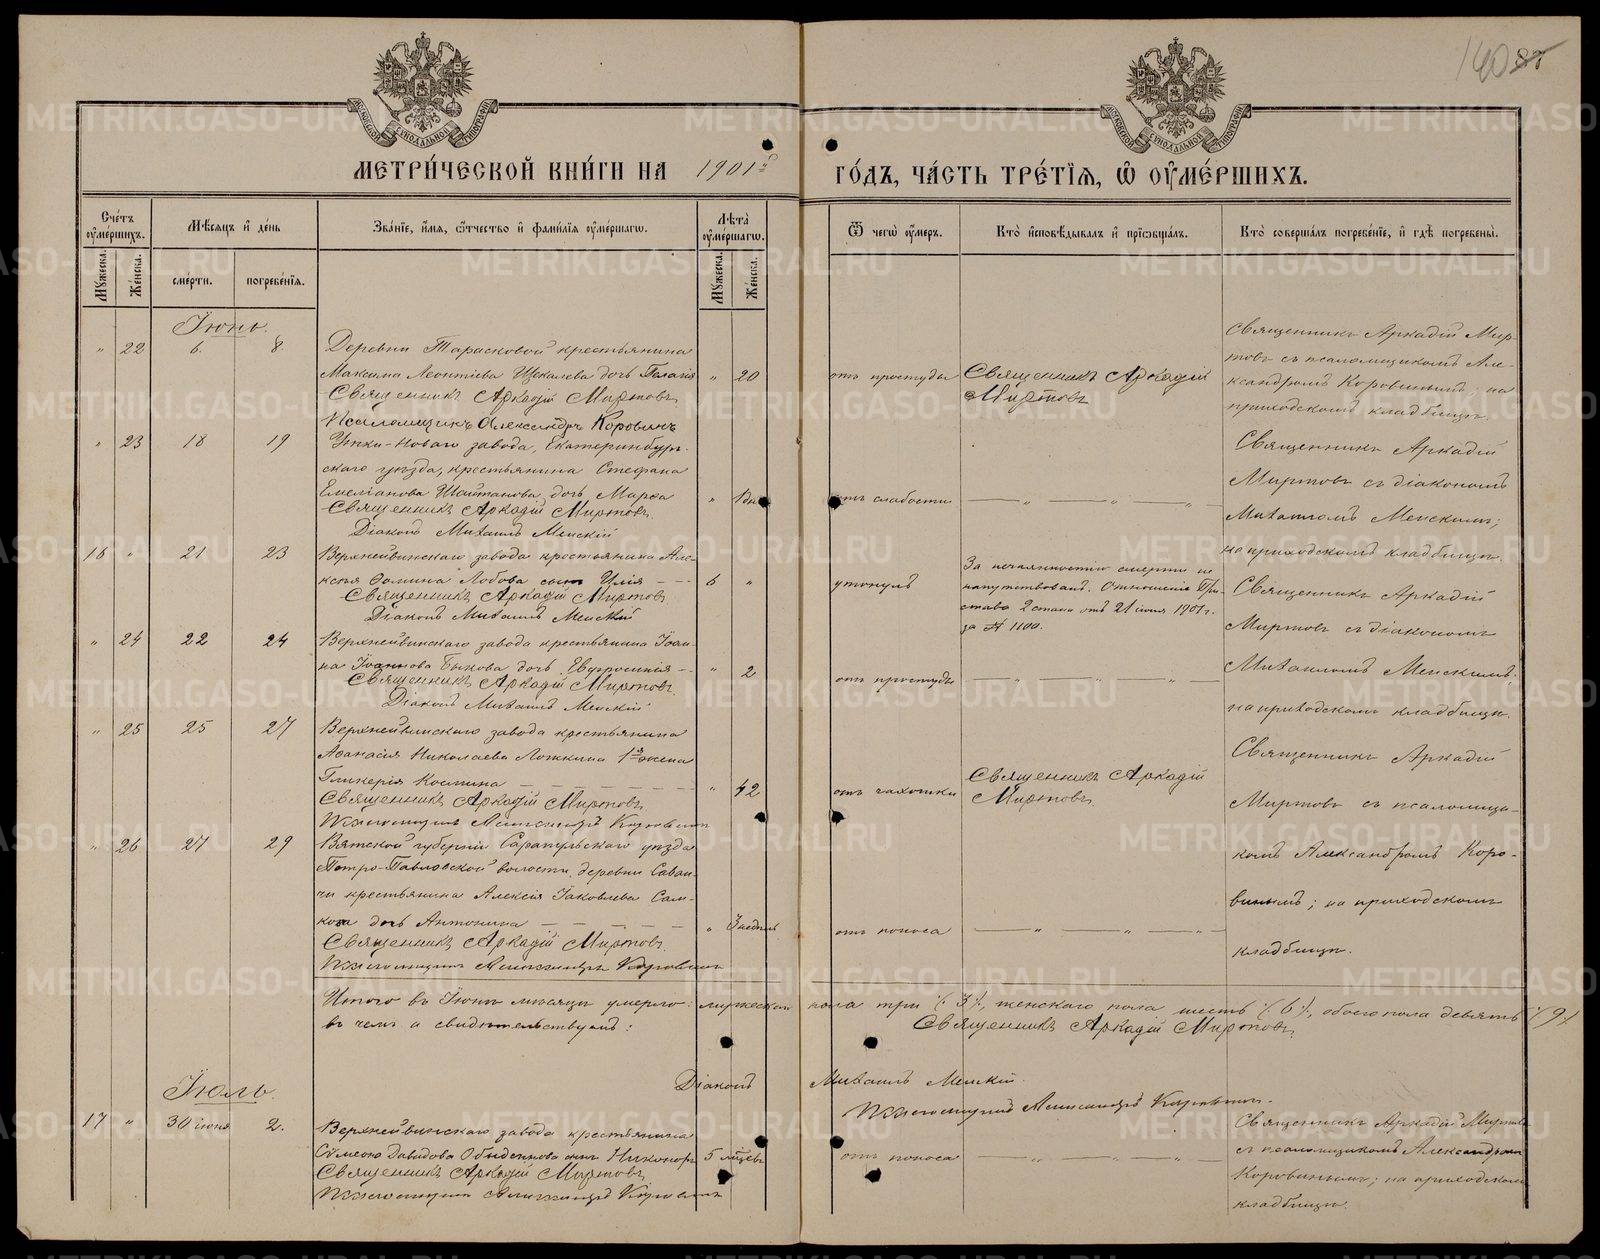 140 87
МОСКОВСКОЙ СѴНОДАЛЬНОЙ ТИПОГРАФІИ
МОСКОВСКОЙ СѴНОДАЛЬНОЙ ТИПОГРАФІИ
МЕТРИ́ЧЕСКОЙ КНИ́ГИ НА 1901й ГО́ДЪ, ЧА́СТЬ ТРЕ́ТІѦ, Ѡ ОУМЕ́РШИХЪ.
Сче́тъ оумéршихъ.
Мѣ́сяцъ и҆ де́нь
Зва́ніе, и҆́мя, ѻ҆́тчество и҆ фамилія оумéршагѡ.
Лѣта̀ оумéршагѡ.
Ѿ чегѡ̀ оу҆́меръ.
Кто̀ и҆сповѣ́дывалъ и҆ прїѡбща́лъ.
Кто̀ соверша́лъ погребе́ніе, и҆ гдѣ̀ погребены̀.
Мужеска.
Женска.
сме́рти.
погребе́нія.
Мужеска.
Женска.
Іюнь.
" 22 6. 8.
Деревни Тарасковой крестьянина
Максима Леонтіева Щекалева дочь Пелагія " 20
Священникъ Аркадій Миртовъ.
Псаломщикъ Александръ Коровинъ
отъ простуды
Священникъ Аркадій
Миртовъ
Священникъ Аркадій Мир-
товъ съ псаломщикомъ Але-
ксандромъ Коровинымъ; на
приходскомъ кладбищѣ.
" 23 18 19
Уткинскаго завода, Екатеринбург-
скаго уѣзда, крестьянина Стефана
Емеліанова Шайтанова дочь Марѳа "
Священникъ Аркадій Миртовъ.
Діаконъ Михаилъ Менскій
отъ слабости — " — " — "
Священникъ Аркадій
Миртовъ съ діакономъ
Михаиломъ Менскимъ;
на приходскомъ кладбищѣ.
16 " 21 23
Верхнейвинскаго завода крестьянина Але-
ксѣя Ѳомина Лобова сынъ Илія — — 6 "
Священникъ Аркадій Миртовъ
Діаконъ Михаилъ Менскій
утонулъ
За нечаянностію смерти не
напутствованъ. Отношеніе При-
става 2 стана отъ 21 іюня 1901 г.
за № 1100.
Священникъ Аркадій
Миртовъ съ діакономъ
Михаиломъ Менскимъ;
на приходскомъ кладбищѣ.
" 24 22 24
Верхнейвинскаго завода крестьянина Іоан-
на Іоаннова Быкова дочь Евфросинія — " 2
Священникъ Аркадій Миртовъ.
Діаконъ Михаилъ Менскій
отъ простуды — " — " — "
" 25 25 27
Верхнейвинскаго завода крестьянина
Аѳанасія Николаева Ложкина 1я жена
Гликерія Космина — — — — — " 42
Священникъ Аркадій Миртовъ
Псаломщикъ Александръ Коровинъ
отъ чахотки
Священникъ Аркадій
Миртовъ
Священникъ Аркадій
Миртовъ съ псаломщи-
комъ Александромъ Коро-
винымъ; на приходскомъ
кладбищѣ.
" 26 27 29
Вятской губерніи Сарапульскаго уѣзда
Петро-Павловской волости, деревни
крестьянина Алексія Іаковлева
дочь Антонина — — — — " 3 недѣль
Священникъ Аркадій Миртовъ.
Псаломщикъ Александръ Коровинъ
отъ поноса — " — " — "
Итого въ Іюнѣ мѣсяцѣ умерло: мужескаго пола три (: 3 :), женскаго пола шесть (: 6 :), обоего пола девять (: 9 :)
въ чемъ и свидѣтельствуемъ:
Священникъ Аркадій Миртовъ
Діаконъ Михаилъ Менскій.
Псаломщикъ Александръ Коровинъ.
Іюль.
17 " 30 іюня 2.
Верхнейвинскаго завода крестьянина
Сѵмеона Давидова сынъ Никоноръ 5 мѣсяцевъ
Священникъ Аркадій Миртовъ
Псаломщикъ Александръ Коровинъ
отъ поноса — " — " — "
Священникъ Аркадій Миртовъ
съ псаломщикомъ Александромъ
Коровинымъ; на приходскомъ
кладбищѣ.
METRIKI.GASO-URAL.RU